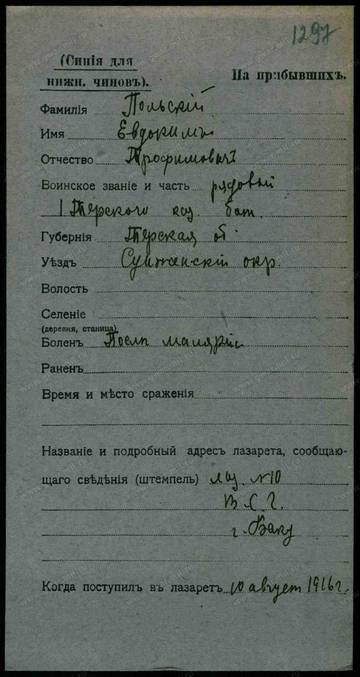 1297
(Синія для
нижн. чиновъ).
На прибывшихъ.
Фамилія Польскій
Имя Евдокимъ
Отчество Трофимовичъ
Воинское званіе и часть рядовый
1 Терского каз. бат.
Губернія Терская об
Уѣздъ Сунженскій окр.
Волость
Селеніе
(деревня, станица)
Боленъ Послѣ маляріи
Раненъ
Время и мѣсто сраженія
Названіе и подробный адресъ лазарета, сообщаю-
щаго свѣдѣнія (штемпель) лаз. №10
В. С. Г.
г. Баку
Когда поступилъ въ лазаретъ 10 август 1916 г.